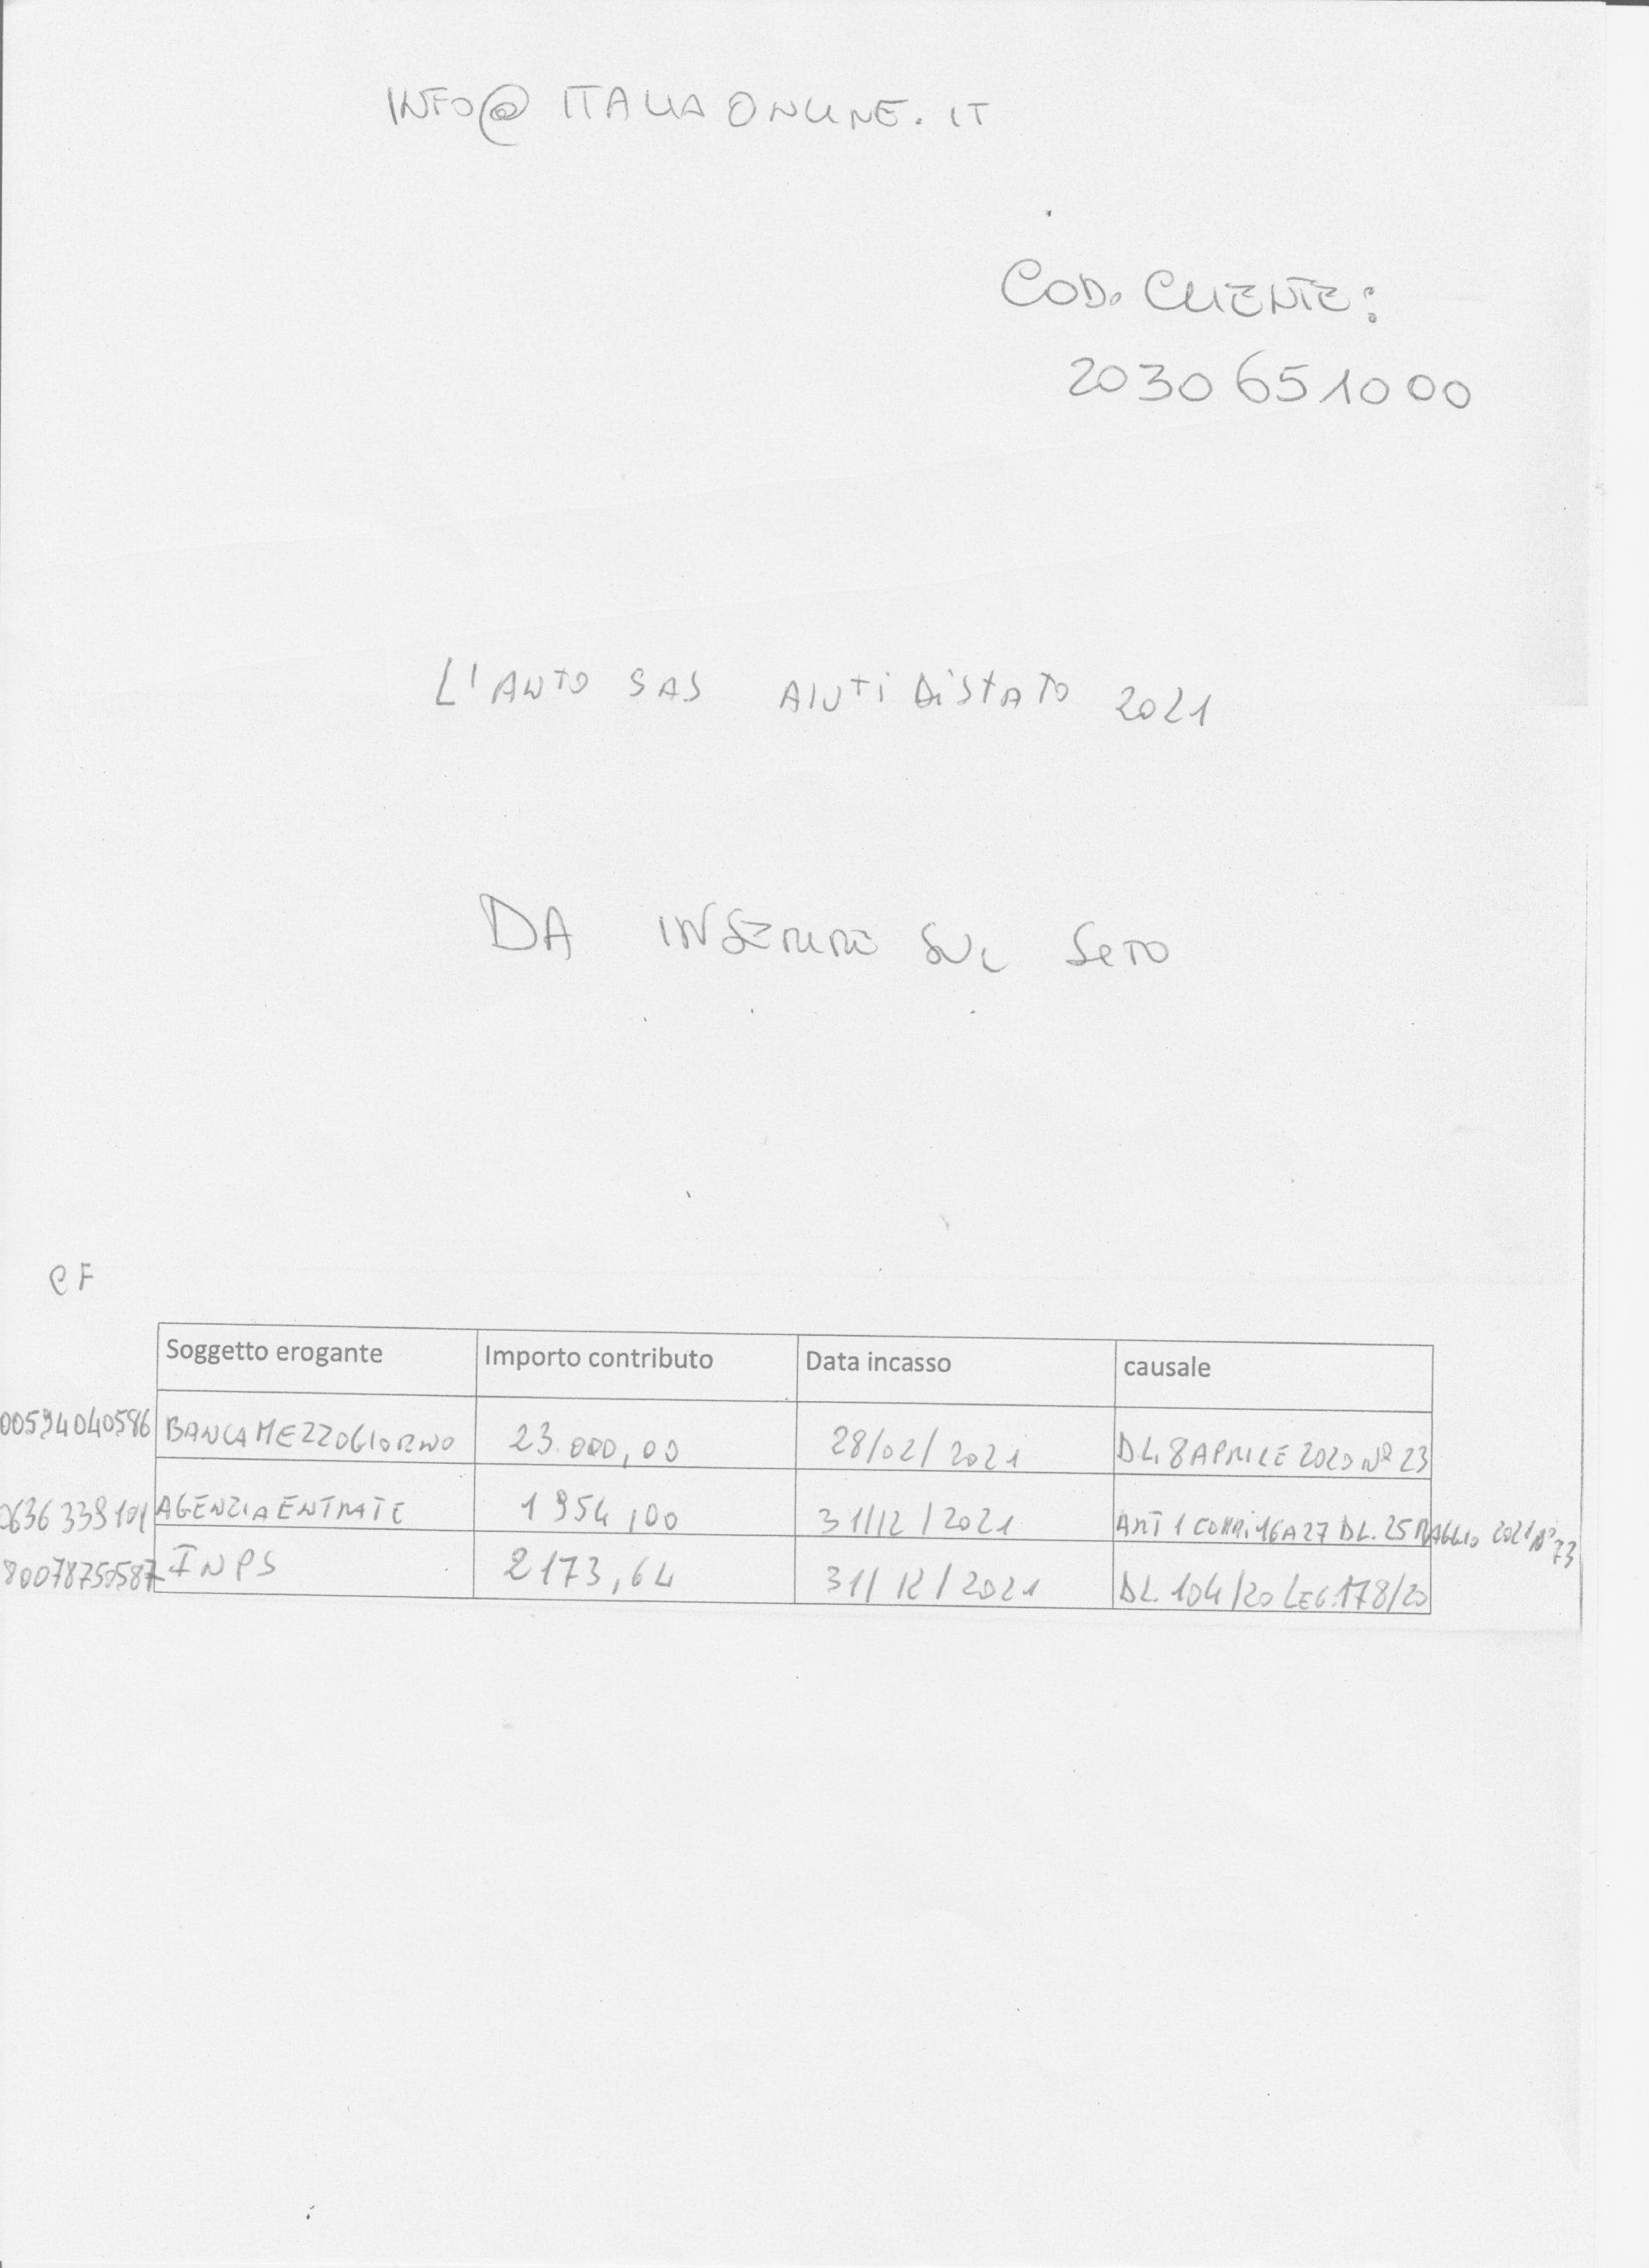 INFO@ITALIAONLINE.IT
COD. CLIENTE:
2030651000
L'AUTO SAS AIUTI DI STATO 2021
DA INSERIRE SUL SITO
CF
Soggetto erogante Importo contributo Data incasso causale
00594040586 BANCA MEZZOGIORNO 23.000,00 28/02/2021 DL. 8 APRILE 2020 Nº 23
06363391 AGENZIA ENTRATE 1954,00 31/12/2021 ART 1 COMMI 16 A 27 DL. 25 MAGGIO 2021 Nº 73
80078750587 INPS 2173,64 31/12/2021 DL. 104/20 LEG. 178/20